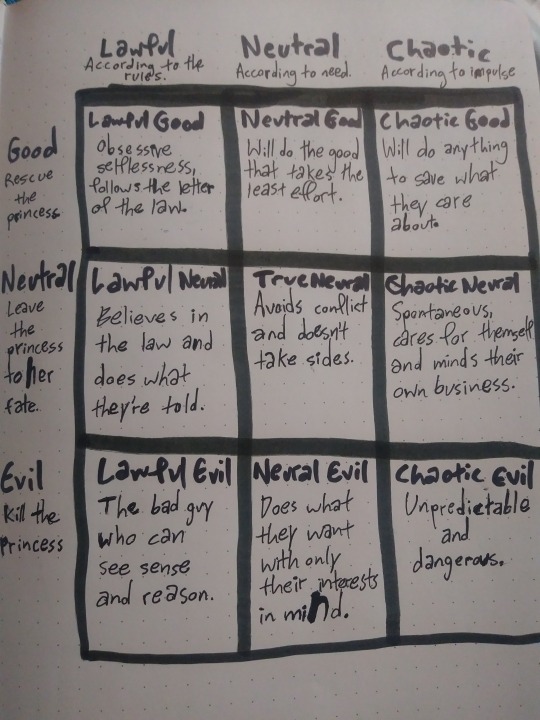 Lawful
According to the
rules.
Neutral
According to need.
Chaotic
According to impulse
Good
Rescue
the
princess
Lawful Good
Obsessive
selflessness,
follows the letter
of the law.
Neutral Good
Will do the good
that takes the
least effort.
Chaotic Good
Will do anything
to save what
they care
about.
Neutral
Leave
the
princess
to her
fate.
Lawful Neural
Believes in
the law and
does what
they're told.
True Neural
Avoids conflict
and doesn't
take sides.
Chaotic Neural
Spontaneous,
cares for themself
and minds their
own business.
Evil
Kill the
Princess
Lawful Evil
The bad guy
who can
see sense
and reason.
Neural Evil
Does what
they want
with only
their interests
in mind.
Chaotic Evil
Unpredictable
and
dangerous.